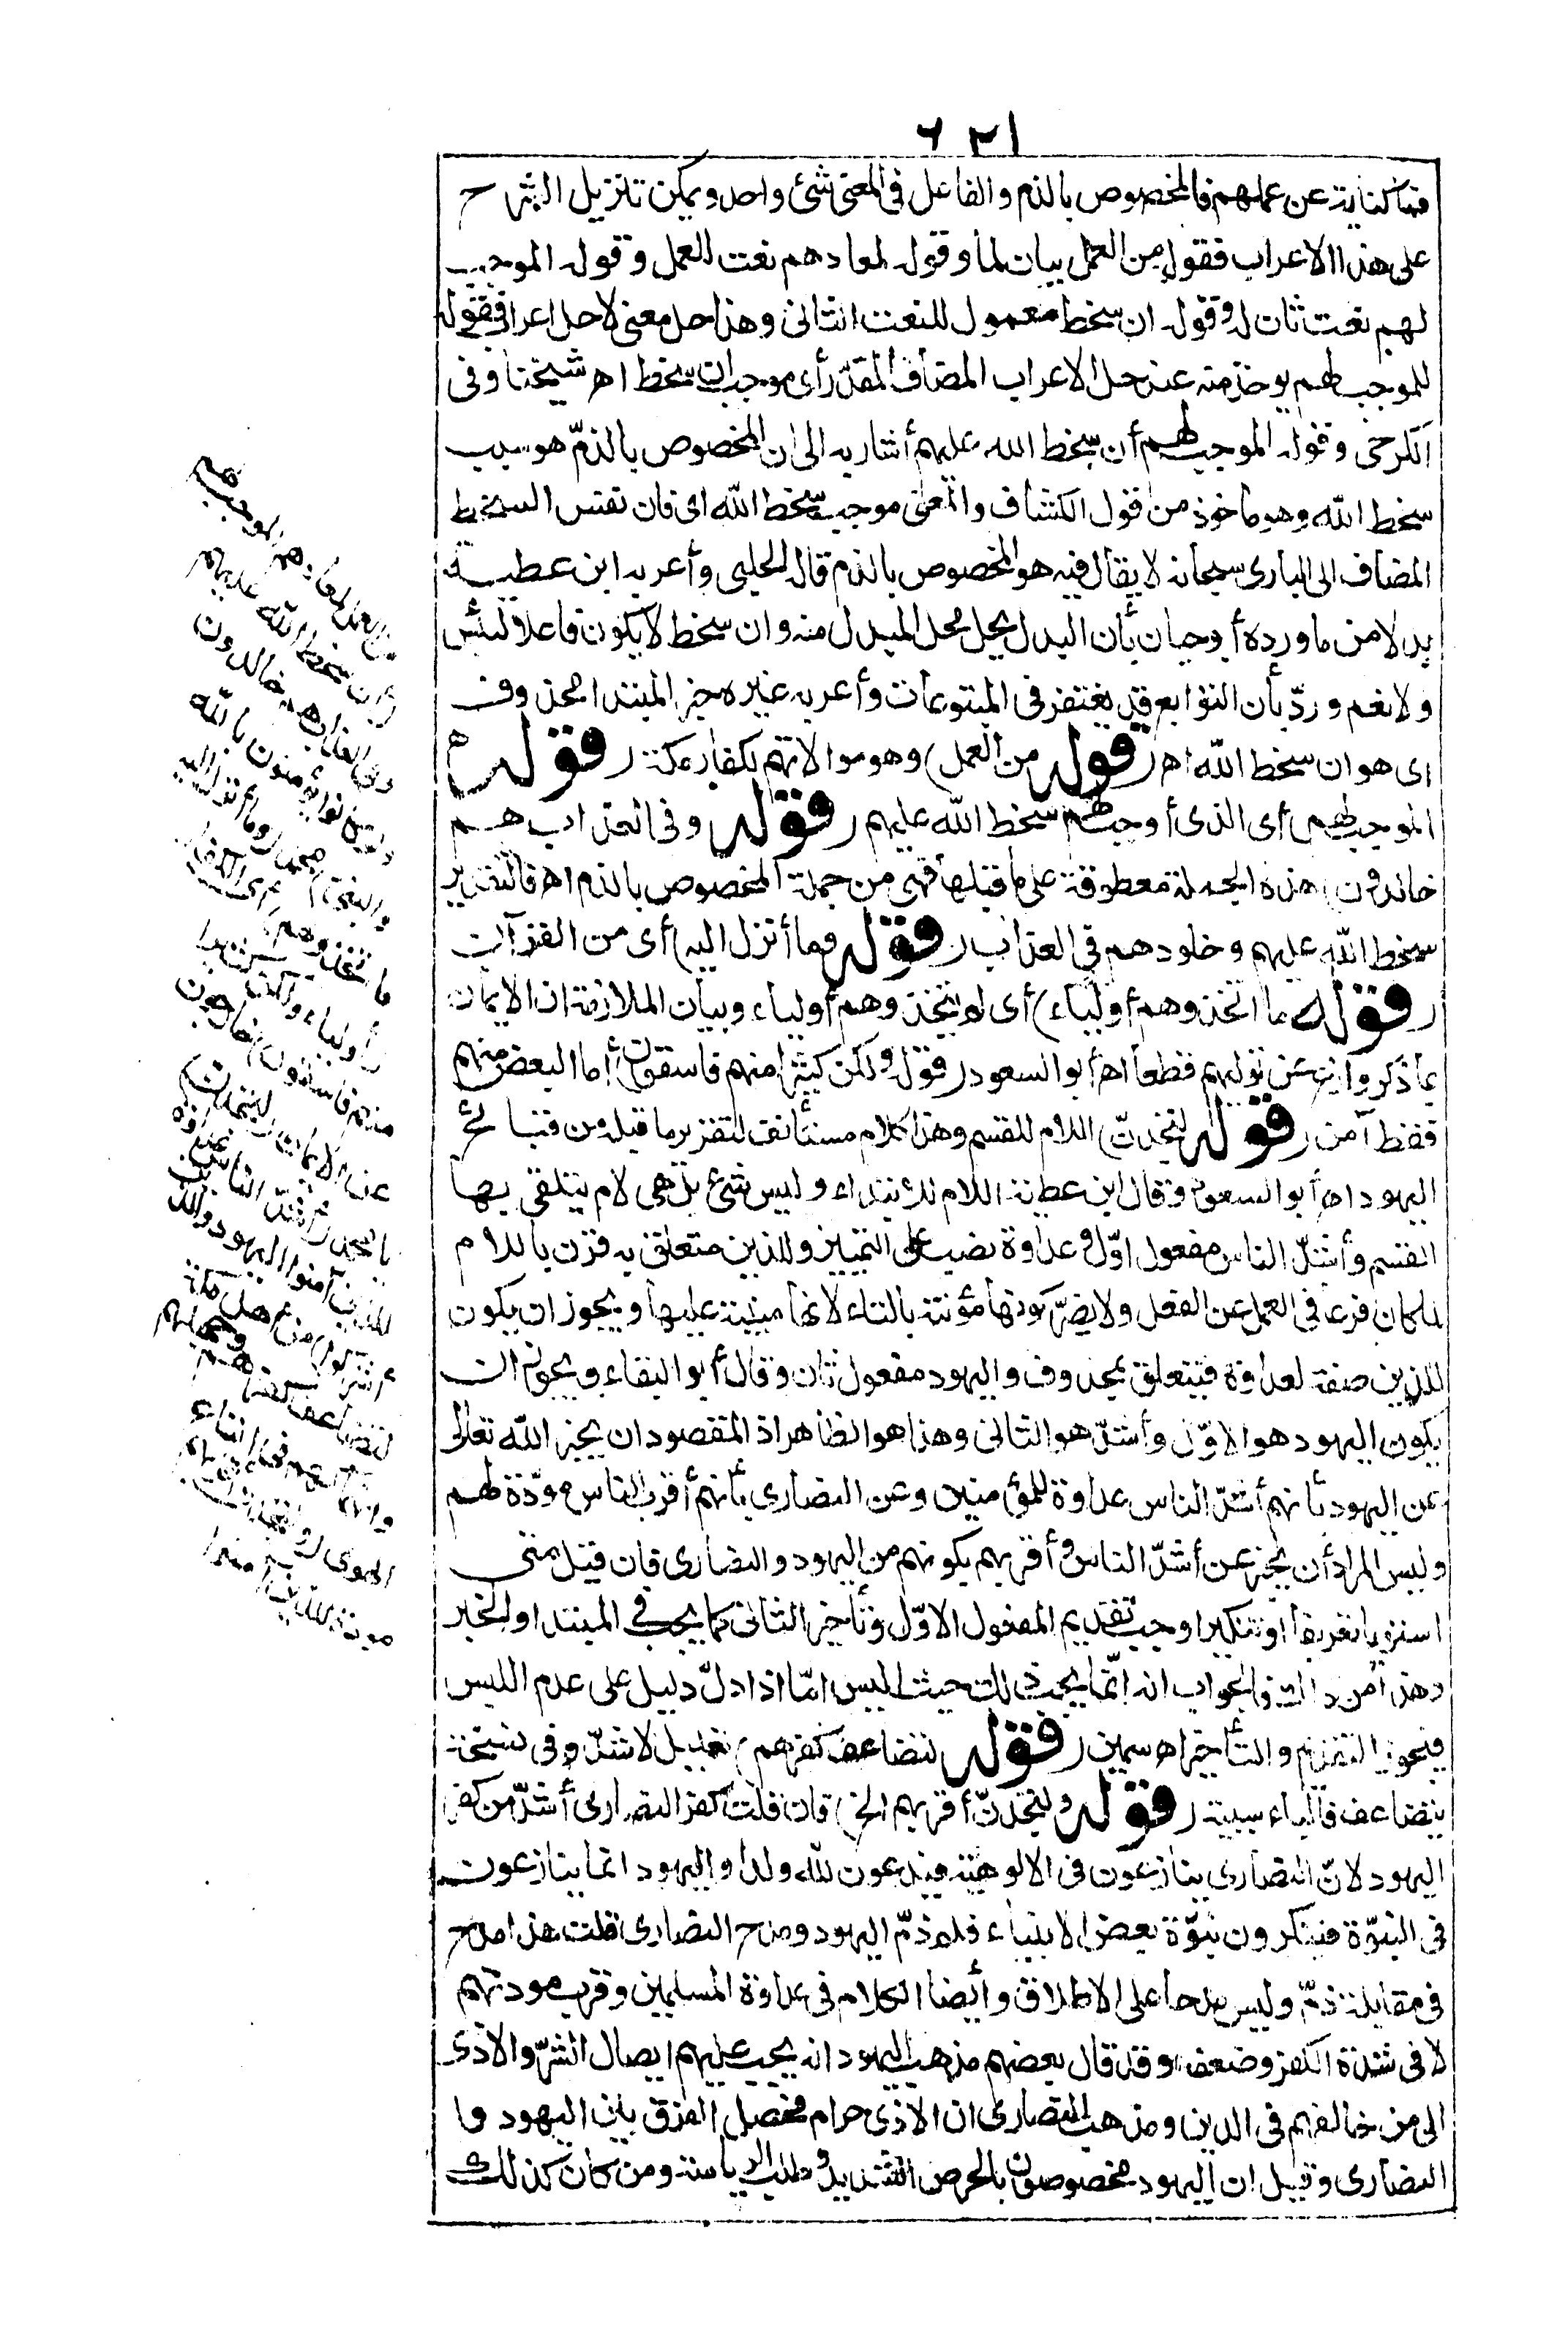 ٦٢١
فما كناية عن عملهم فالمخصوص بالذم والفاعل فى المعنى شئ واحد ويمكن تنزيل الشرح
على هذا الاعراب فقوله من العمل بيان لما وقوله لمعادهم نعت للعمل وقوله الموجب
لهم نعت ثان له وقوله ان سخط معمول للنعت الثانى وهذا حل معنى لا حل اعراب فقوله
الموجب لهم يوخذ منه عند حل الاعراب المضاف المقدّر أى موجب ان سخط اه شيخنا وفى
الكرخى وقوله الموجب لهم أن سخط الله عليهم أشار به الى ان المخصوص بالذمّ هو سبب
سخط الله وهو ماخوذ من قول الكشاف والمعنى موجب سخط الله اى فان نفس السخط
المضاف الى البارى سبحانه لا يقال فيه هو المخصوص بالذم قاله الحلبى وأعربه ابن عطية
بدلا من ما ورده أبو حيان بأن البدل يحل محل المبدل منه وان سخط لا يكون فاعلا لبئس
ولا نعم وردّ بأن التوابع قد يغتفر فى المتبوعات وأعربه غيره خبر المبتدا محذوف
اى هو ان سخط الله اه (قوله من العمل) وهو موالاتهم لكفار مكة (قوله
الموجب لهم) أى الذى أوجب لهم سخط الله عليهم (قوله وفى العذاب هم
خالدون) هذه الجملة معطوفة على ما قبلها فهى من جملة المخصوص بالذم اه فالتقدير
سخط الله عليهم وخلودهم فى العذاب (قوله وما أنزل اليه) أى من القرآن
(قوله ما اتخذوهم أولياء) أى لم يتخذوهم أولياء وبيان الملازمة ان الايمان
بما ذكر وازع عن توليهم قطعا اه أبو السعود (قوله ولكن كثيرا منهم فاسقون) أما البعض منهم
فقط آمن (قوله لتجدنّ) اللام للقسم وهذا كلام مستأنف لتقرير ما قبله من قبائح
اليهود اه أبو السعود وقال ابن عطية اللام للابتداء وليس بشئ بل هى لام يتلقى بها
القسم وأشدّ الناس مفعول اوّل وعداوة نصب على التمييز وللذين متعلق به قرن باللام
لما كان فرعا فى العمل عن الفعل ولا يضرّ كونها مؤنثة بالتاء لانها مبنية عليها ويجوز ان يكون
للذين صفة لعداوة فيتعلق بمحذوف واليهود مفعول ثان وقال أبو البقاء ويجوز ان
يكون اليهود هو الاوّل وأشدّ هو الثانى وهذا هو الظاهر اذ المقصود ان يخبر الله تعالى
عن اليهود بأنهم أشدّ الناس عداوة للمؤمنين وعن النصارى بأنهم أقرب الناس مودّة لهم
وليس المراد أن يخبر عن أشدّ الناس وأقربهم بكونهم من اليهود والنصارى فان قيل متى
استويا تعريفا أو تنكيرا وجب تقديم المفعول الاوّل وتأخير الثانى كما يجب فى المبتدا والخبر
وهذا من ذاك فالجواب انه انّما يجب ذلك حيث البس امّا اذا دلّ دليل على عدم اللبس
فيجوز التقديم والتأخير اه سمين (قوله لتضاعف كفرهم) تعليل لاشدّ وفى نسخة
بتضاعف فالباء سببية (قوله ولتجدنّ أقربهم الخ) فان قلت كفر النصارى أشدّ من كفر
اليهود لانّ النصارى ينازعون فى الالوهية فيدعون لله ولدا واليهود انما ينازعون
فى النبوّة فينكرون نبوّة بعض الانبياء فلم ذمّ اليهود ومدح النصارى قلت هذا مدح
فى مقابلة ذمّ وليس مدحا على الاطلاق وأيضا الكلام فى عداوة المسلمين وقرب مودتهم
لا فى شدة الكفر وضعفه وقد قال بعضهم مذهب اليهود انه يجب عليهم ايصال الشرّ والاذى
الى من خالفهم فى الدين ومذهب النصارى ان الاذى حرام فحصل الفرق بين اليهود وا
النصارى وقيل ان اليهود مخصوصون بالحرص الشديد وطلب الرياسة ومن كان كذلك
من العمل لمعادهم الموجب لهم
(أن سخط الله عليهم
وفى العذاب هم خالدون
ولو كانوا يؤمنون بالله
والنبى) محمد (وما أنزل اليه
ما اتخذوهم) أى الكفار
(أولياء ولكن كثيرا
منهم فاسقون) خارجون
عن الايمان (لتجدن)
يا محمد (أشدّ الناس عداوة
للذين آمنوا اليهود والذين
أشركوا) من أهل مكة
لتضاعف كفرهم وجهلهم
وانهماكهم فى اتباع
الهوى (ولتجدن أقربهم
مودة للذين آمنوا